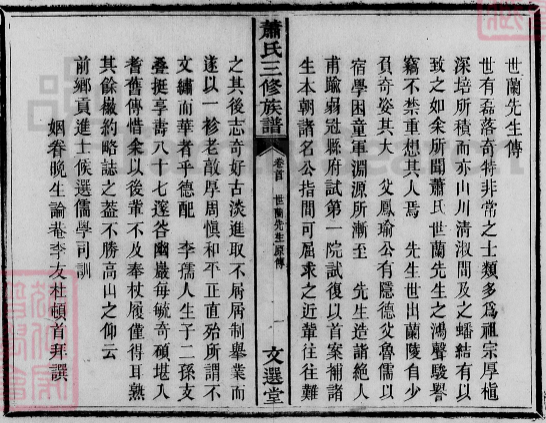 世蘭先生傳
世有磊落奇特非常之士類多爲祖宗厚植
深培所積而亦山川清淑間及之蟠結有以
致之如余所聞蕭氏世蘭先生之鴻聲駿譽
竊不禁重想其人焉 先生世出蘭陵自少
負奇姿其大 父鳳瑜公有隱德父魯儒以
宿學困童軍淵源所漸至 先生造詣絶人
甫踰弱冠縣府試第一院試復以首案補諸
生本朝諸名公指間可屈求之近輩往往難
蕭氏三修族譜
卷首 世蘭先生原傳 一
文選堂
之其後志奇好古淡進取不屑屑制舉業而
遂以一衫老敵厚周愼和平正直殆所謂不
文繡而華者乎德配 李孺人生子二孫支
叠挺享壽八十七邃谷幽巖毎毓奇碩堪入
耆舊傳惜余以後輩不及奉杖履僅得耳熟
其餘徽約略誌之葢不勝高山之仰云
前鄉貢進士候選儒學司訓
姻眷晚生論巷李友杜頓首拜譔